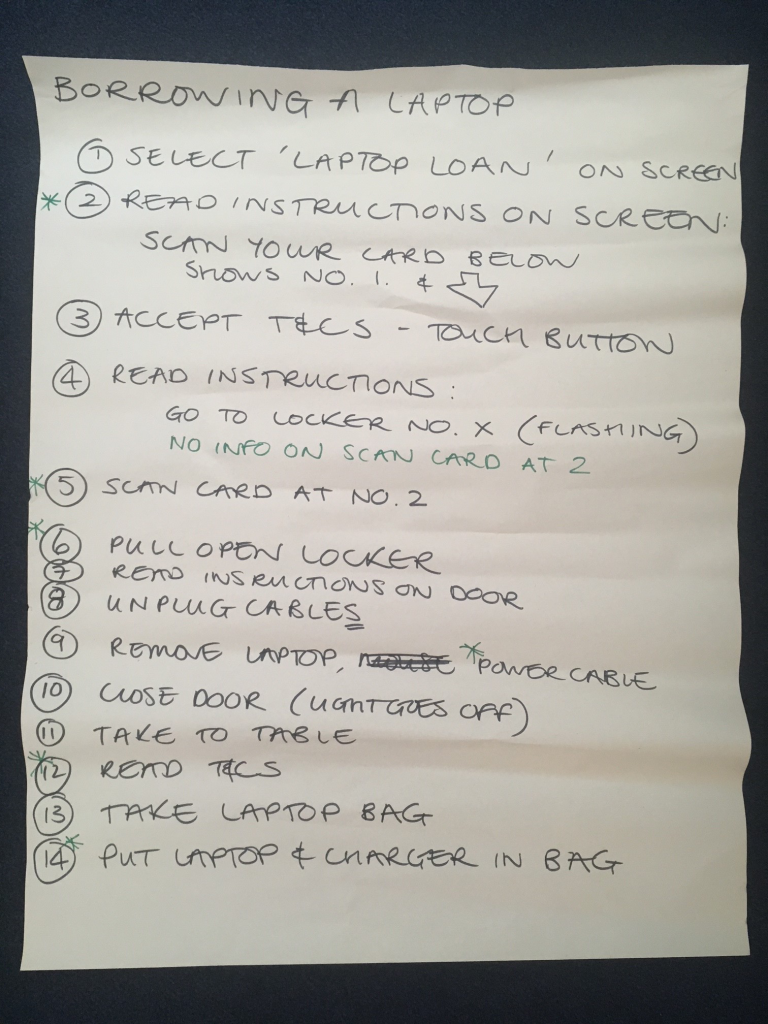 BORROWING A LAPTOP
① SELECT 'LAPTOP LOAN' ON SCREEN
* ② READ INSTRUCTIONS ON SCREEN:
SCAN YOUR CARD BELOW
SHOWS NO. 1. &
③ ACCEPT T&CS - TOUCH BUTTON
④ READ INSTRUCTIONS:
GO TO LOCKER NO. X (FLASHING)
NO INFO ON SCAN CARD AT 2
* ⑤ SCAN CARD AT NO. 2
* ⑥ PULL OPEN LOCKER
⑦ READ INSRUCTIONS ON DOOR
⑧ UNPLUG CABLES
⑨ REMOVE LAPTOP, MOUSE * POWER CABLE
⑩ CLOSE DOOR (LIGHT GOES OFF)
⑪ TAKE TO TABLE
* ⑫ READ T&CS
⑬ TAKE LAPTOP BAG
⑭ * PUT LAPTOP & CHARGER IN BAG